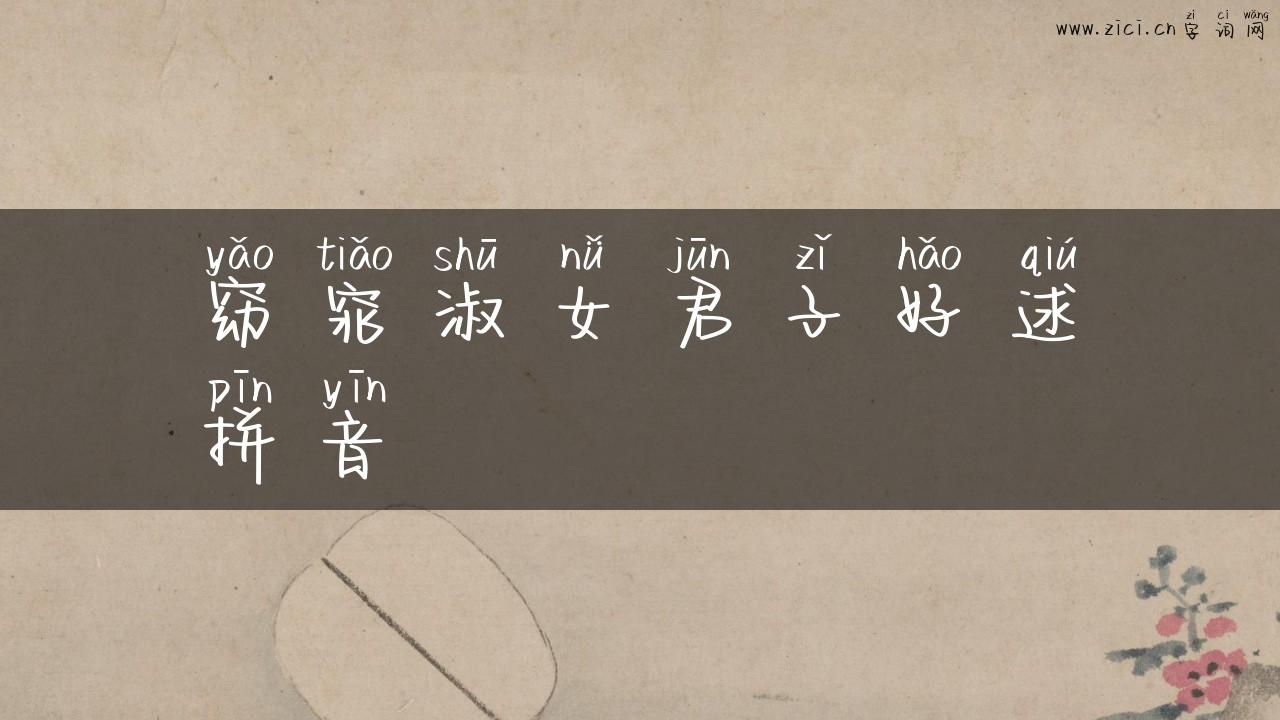 zì cí wǎng
www.zici.cn 字 词 网
yǎo tiǎo shū nǚ jūn zǐ hǎo qiú
窈 窕 淑 女 君 子 好 逑
pīn yīn
拼 音